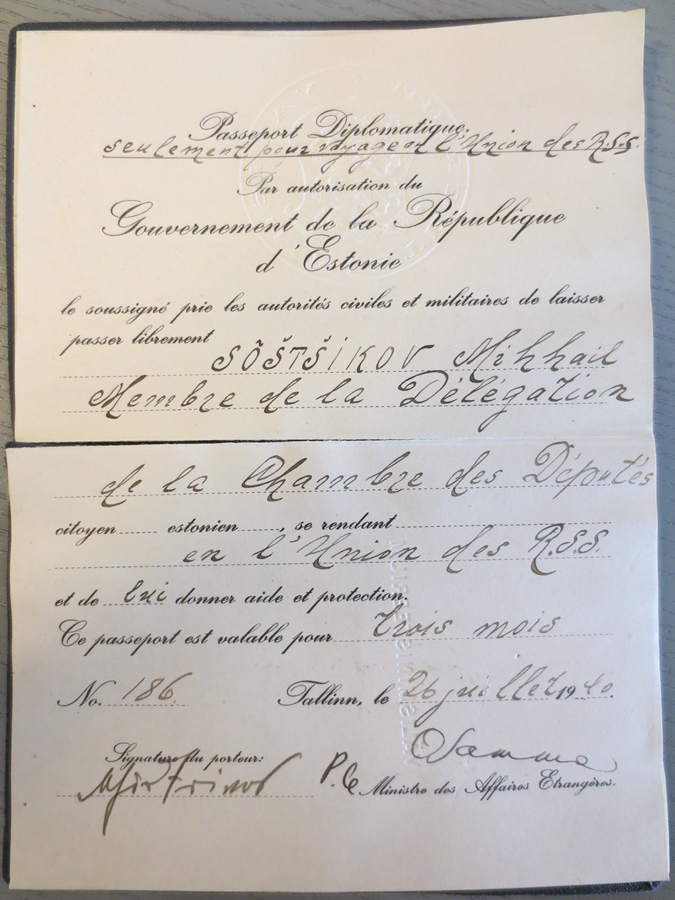 Passeport Diplomatique.
seulement pour voyage en l'Union des R.S.S.
Par autorisation du
Gouvernement de la République
d'Estonie
le soussigné prie les autorités civiles et militaires de laisser
passer librement SÕŠTŠIKOV Mihhail
Membre de la Délégation
de la Chambre des Députés
citoyen estonien, se rendant
en l'Union des R.S.S.
et de lui donner aide et protection.
Ce passeport est valable pour trois mois
No. 186. Tallinn, le 26 juillet 1940.
Signature du porteur:
P. Ministre des Affaires Etrangères.